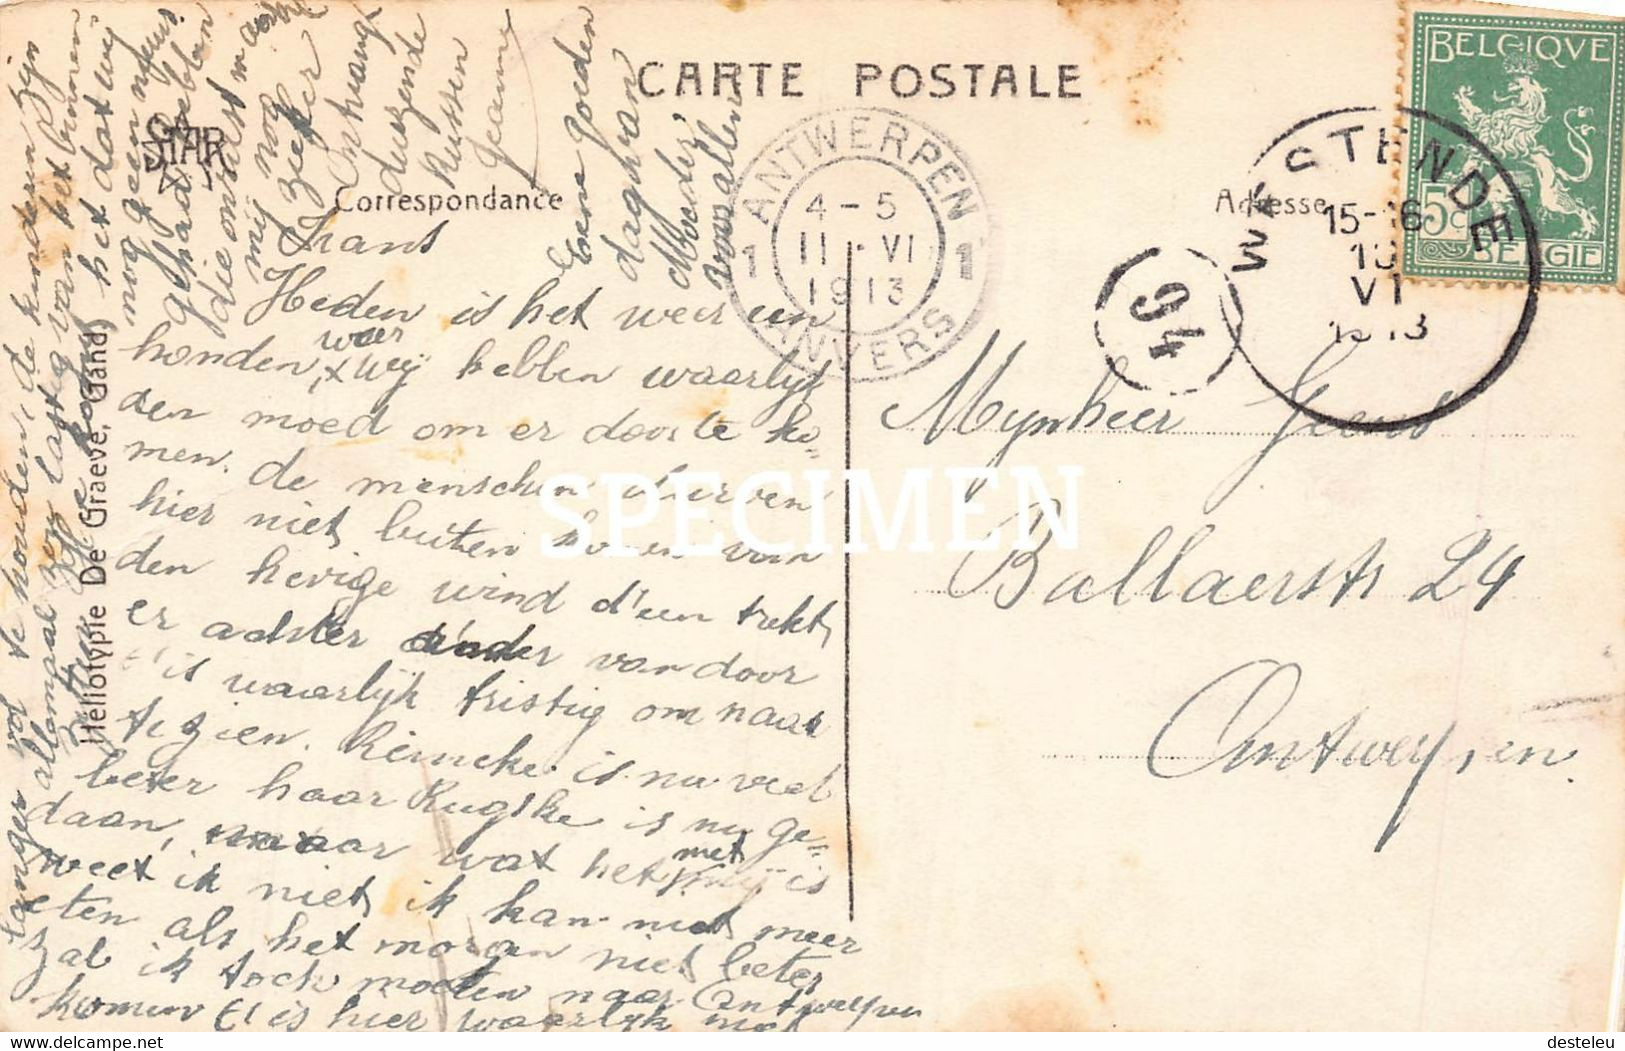 CARTE POSTALE
Correspondance
Adresse
STAR
Heliotypie De Graeve, Gand
BELGIQUE
5c
BELGIE
WESTENDE
15-16
10
VI
1913
ANTWERPEN
1 4-5 1
11-VI
1913
ANVERS
94
SPECIMEN
Mynheer Geens
Ballaerstr 24
Antwerpen.
Frans
Heden is het weer een
honden weer x wij hebben waarlijk
den moed om er door te ko=
men. de menschen durven
hier niet buiten komen van
den hevige wind d'een trekt
er achter d'ander van door
't is waarlijk tristig om naar
te zien. Reineke is nu veel
beter haar Rugske is nu ge=
daan, maar wat het met mij is
weet ik niet ik kan niet meer
eten als het morgen niet beter
zal ik toch moeten naar Antwerpen
komen 't is hier waarlijk niet
langer vol te houden, de kinderen zijn
allemaal zoo lastig van het binnen
zitten
het dat wij
nog geen nieuws
gehad hebben
mij nog
zieker
Ontvangt
duizende
kussen
Jeanne
Eene goeden
dag van
Moeder
voor allen
www.delcampe.net
desteleu